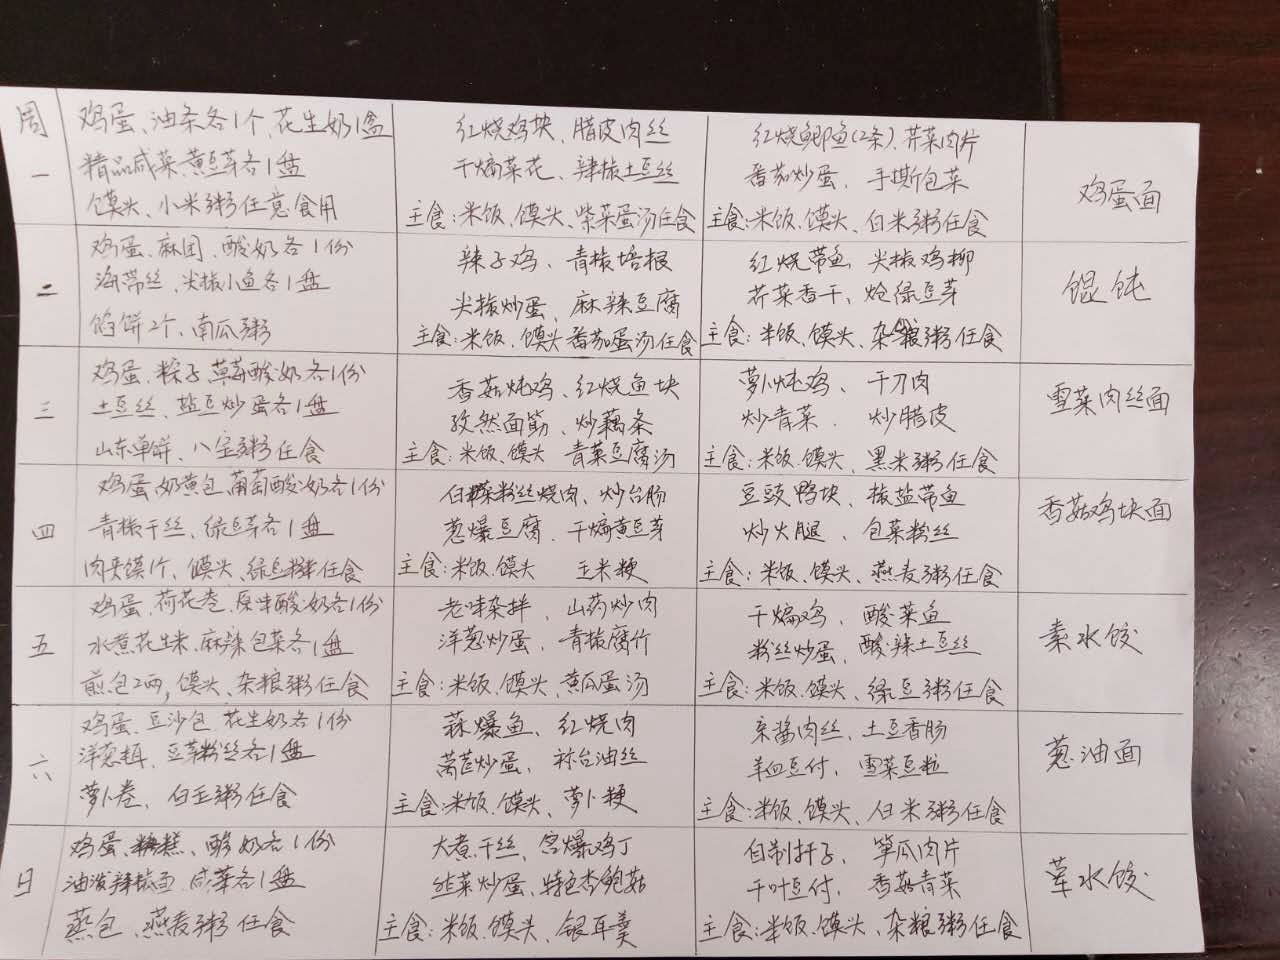 周一
鸡蛋、油条各1个、花生奶1盒
精品咸菜、黄豆芽各1盘
馍头、小米粥任意食用
红烧鸡块、腊皮肉丝
干煸菜花、辣椒土豆丝
主食:米饭、馍头、紫菜蛋汤任食
红烧鲫鱼(2条)、芹菜肉片
番茄炒蛋、手撕包菜
主食:米饭、馍头、白米粥任食
鸡蛋面
二
鸡蛋、麻团、酸奶各1份
海带丝、尖椒小鱼各1盘
馅饼2个、南瓜粥
辣子鸡、青椒培根
尖椒炒蛋、麻辣豆腐
主食:米饭、馍头番茄蛋汤任食
红烧带鱼、尖椒鸡柳
芹菜香干、炝绿豆芽
主食:米饭、馍头、杂粮粥任食
馄饨
三
鸡蛋、粽子草莓酸奶各1份
土豆丝、盐豆炒蛋各1盘
山东单饼、八宝粥任食
香菇炖鸡、红烧鱼块
孜然面筋、炒藕条
主食:米饭、馍头 青菜豆腐汤
萝卜炖鸡、干刀肉
炒青菜、炒腊皮
主食:米饭、馍头、黑米粥任食
雪菜肉丝面
四
鸡蛋、奶黄包、葡萄酸奶各1份
青椒干丝、绿豆芽各1盘
肉夹馍1个、馍头、绿豆粥任食
白菜粉丝烧肉、炒台肠
葱爆豆腐、干煸黄豆芽
主食:米饭、馍头 玉米粳
豆豉鸭块、椒盐带鱼
炒火腿、包菜粉丝
主食:米饭、馍头、燕麦粥任食
香菇鸡块面
五
鸡蛋、荷花卷、原味酸奶各1份
水煮花生米、麻辣包菜各1盘
煎包2两,馍头、杂粮粥任食
老味杂拌、山药炒肉
洋葱炒蛋、青椒腐竹
主食:米饭、馍头、黄瓜蛋汤
干煸鸡、酸菜鱼
粉丝炒蛋、酸辣土豆丝
主食:米饭、馍头、绿豆粥任食
素水饺
六
鸡蛋、豆沙包、花生奶各1份
洋葱耳、豆芽粉丝各1盘
萝卜卷、白玉粥任食
蒜爆鱼、红烧肉
莴苣炒蛋、称台油丝
主食:米饭、馍头、萝卜粳
京酱肉丝、土豆香肠
羊血豆付、雪菜豆粒
主食:米饭、馍头、白米粥任食
葱油面
日
鸡蛋、糖糕、酸奶各1份
油泼辣椒面、咸菜各1盘
蒸包、燕麦粥任食
大煮干丝、宫爆鸡丁
韭菜炒蛋、特色杏鲍菇
主食:米饭、馍头、银耳羹
自制扦子、笋瓜肉片
千叶豆付、香菇青菜
主食:米饭、馍头、杂粮粥任食
荤水饺